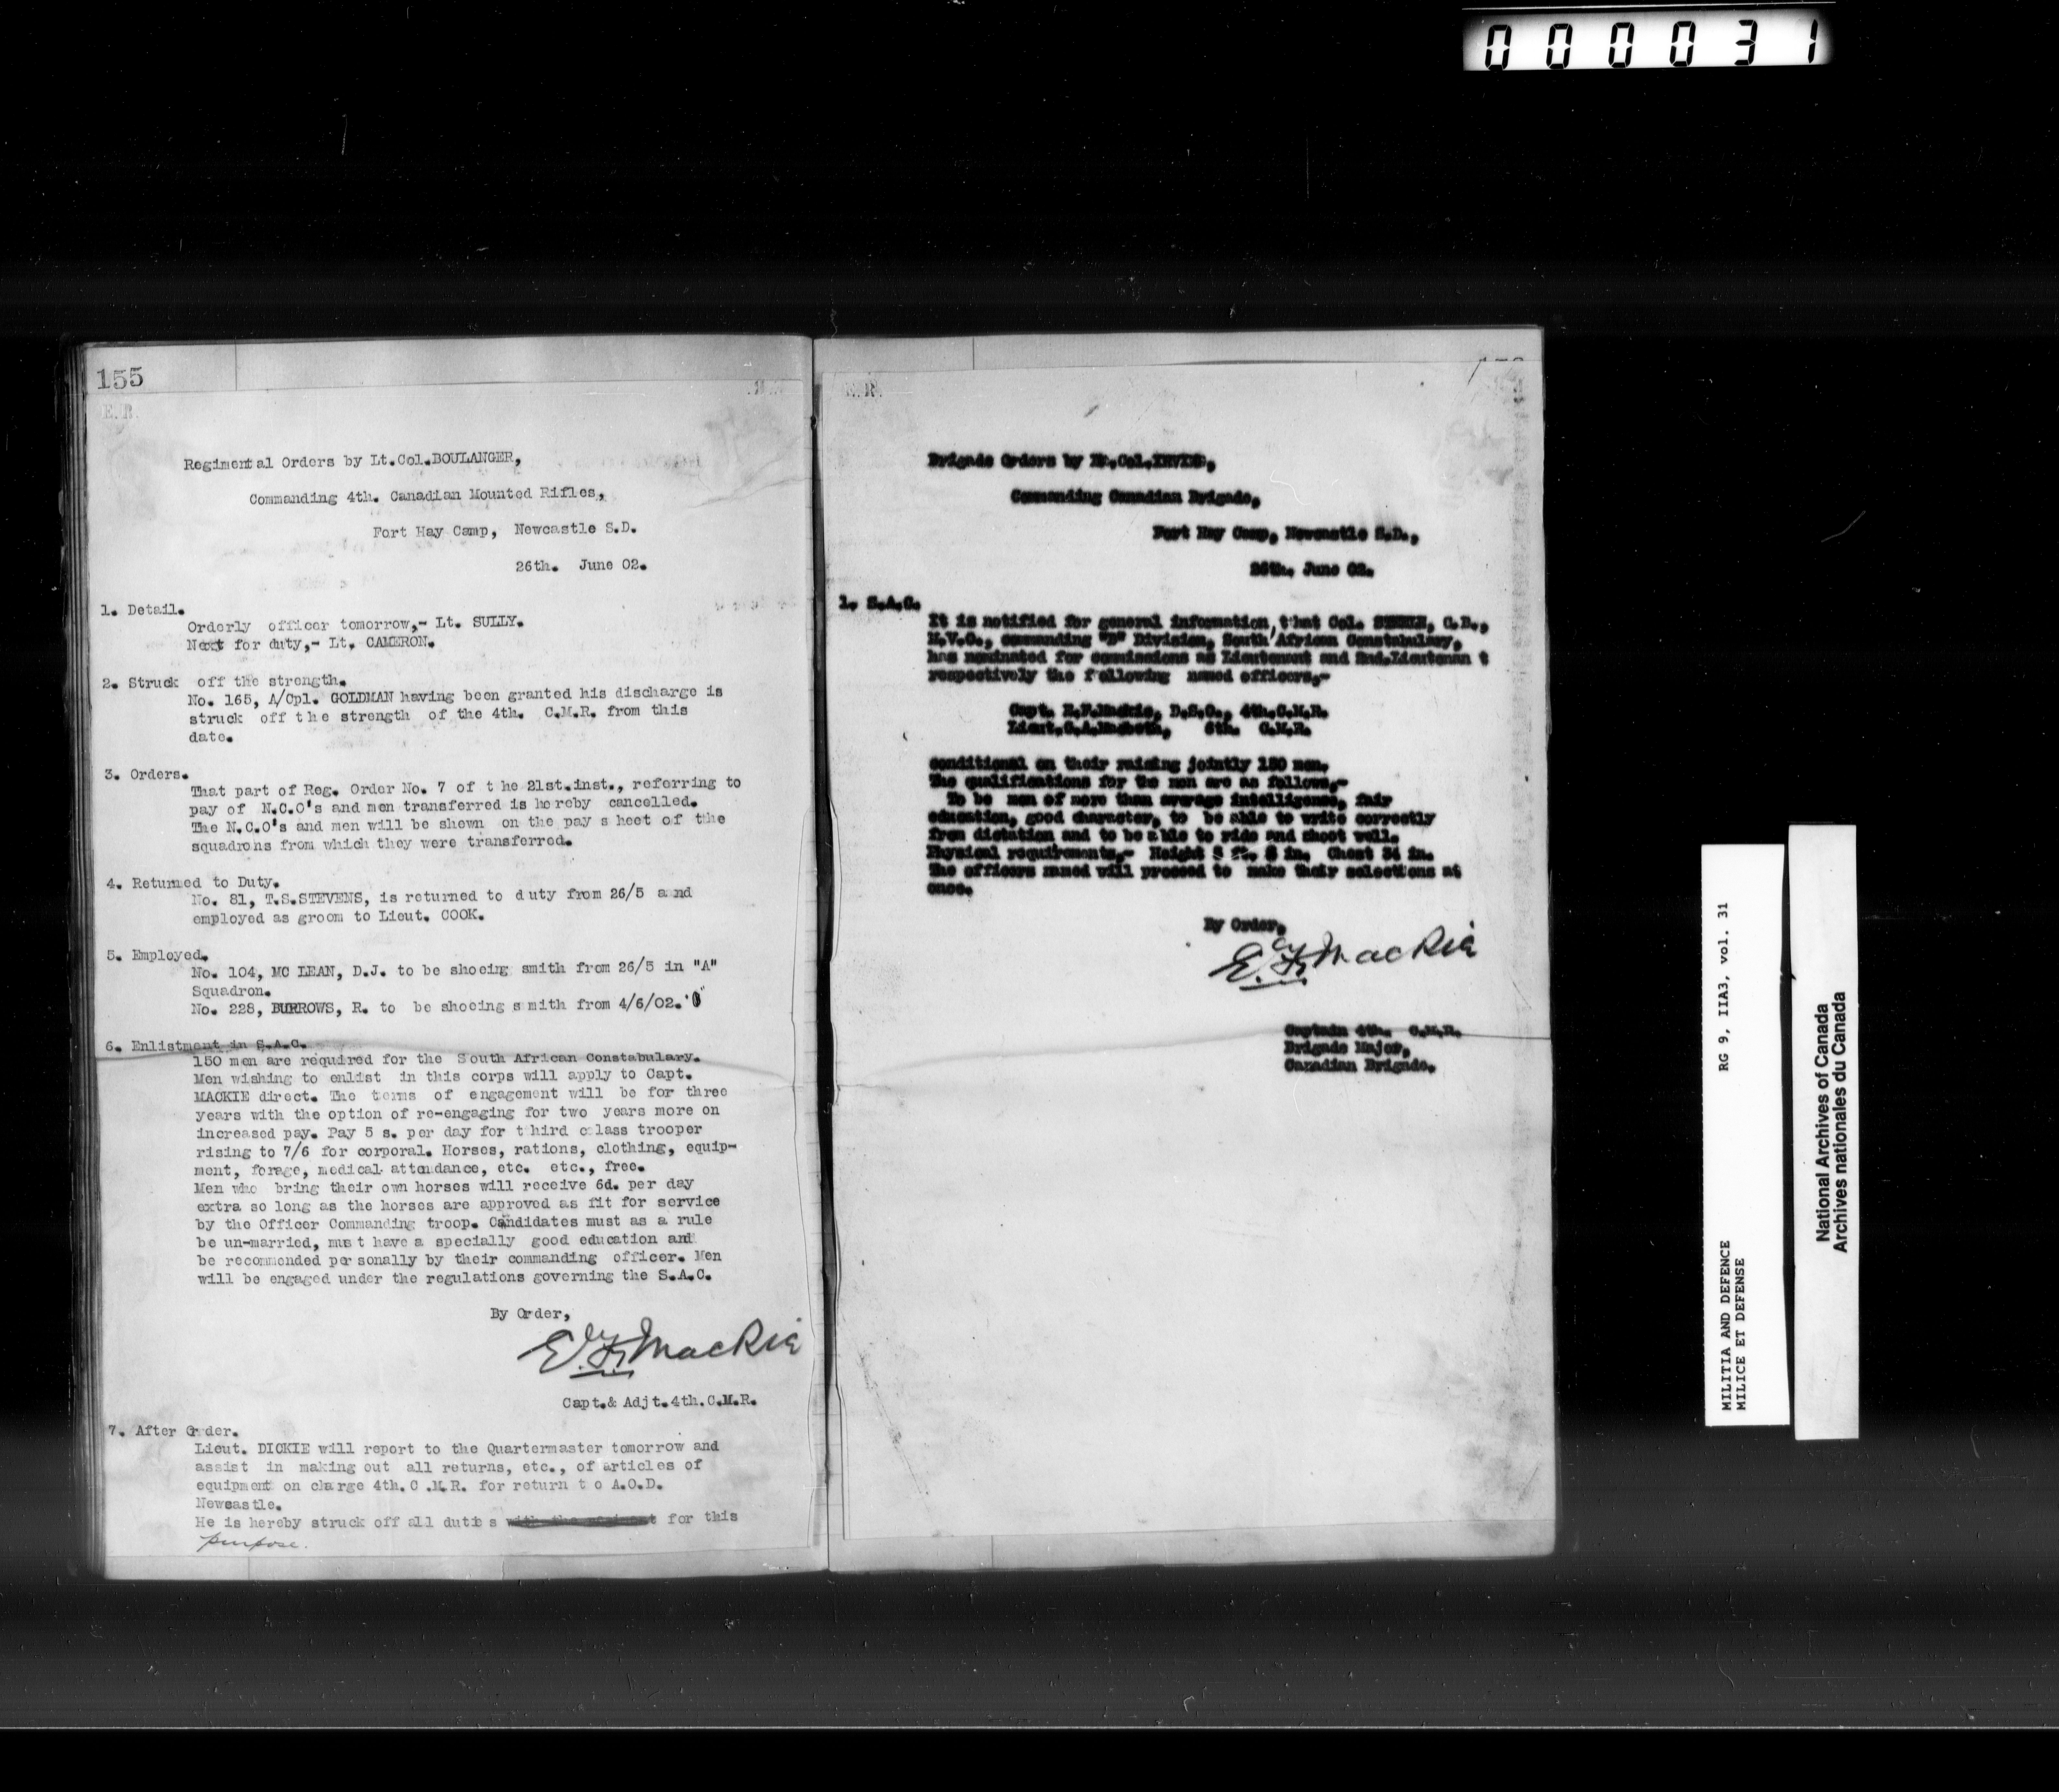 000031
155
E.R.
Regimental Orders by Lt.Col.BOULANGER,
Commanding 4th. Canadian Mounted Rifles,
Fort Hay Camp, Newcastle S.D.
26th. June 02.
1. Detail.
Orderly officer tomorrow,- Lt. SULLY.
Next for duty,- Lt. CAMERON.
2. Struck off the strength.
No. 165, A/Cpl. GOLDMAN having been granted his discharge is
struck off the strength of the 4th. C.M.R. from this
date.
3. Orders.
That part of Reg. Order No. 7 of the 21st.inst., referring to
pay of N.C.O's and men transferred is hereby cancelled.
The N.C.O's and men will be shewn on the pay sheet of the
squadrons from which they were transferred.
4. Returned to Duty.
No. 81, T.S.STEVENS, is returned to duty from 26/5 and
employed as groom to Lieut. COOK.
5. Employed.
No. 104, MC LEAN, D.J. to be shoeing smith from 26/5 in "A"
Squadron.
No. 228, BURROWS, R. to be shoeing smith from 4/6/02.
6. Enlistment in S.A.C.
150 men are required for the South African Constabulary.
Men wishing to enlist in this corps will apply to Capt.
MACKIE direct. The terms of engagement will be for three
years with the option of re-engaging for two years more on
increased pay. Pay 5 s. per day for third class trooper
rising to 7/6 for corporal. Horses, rations, clothing, equip-
ment, forage, medical attendance, etc. etc., free.
Men who bring their own horses will receive 6d. per day
extra so long as the horses are approved as fit for service
by the Officer Commanding troop. Candidates must as a rule
be un-married, must have a specially good education and
be recommended personally by their commanding officer. Men
will be engaged under the regulations governing the S.A.C.
By Order,
E.F. Mackie
Capt.& Adjt.4th.C.M.R.
7. After Order.
Lieut. DICKIE will report to the Quartermaster tomorrow and
assist in making out all returns, etc., of articles of
equipment on charge 4th.C.M.R. for return to A.O.D.
Newsastle.
He is hereby struck off all duties for this
purpose.
E.R.
Brigade Orders by Lt.Col.IRVING,
Commanding Canadian Brigade,
Fort Hay Camp, Newcastle S.D.,
26th. June 02.
1. S.A.C.
It is notified for general information, that Col. STEELE, C.B.,
M.V.O., commanding "B" Division, South African Constabulary,
has nominated for commissions as Lieutenant and 2nd.Lieutenant
respectively the following named officers,-
Capt. E.F.Mackie, D.S.O., 4th.C.M.R.
Lieut.C.A.Macbeth, 6th. C.M.R.
conditional on their raising jointly 150 men.
The qualifications for the men are as follows,-
To be men of more than average intelligence, fair
education, good character, to be able to write correctly
from dictation and to be able to ride and shoot well.
Physical requirements,- Height 5 ft. in. Chest 34 in.
The officers named will proceed to make their selections at
once.
By Order,
E.F. Mackie
Captain 4th. C.M.R.
Brigade Major,
Canadian Brigade.
MILITIA AND DEFENCE RG 9, IIA3, vol. 31
MILICE ET DEFENSE
National Archives of Canada
Archives nationales du Canada